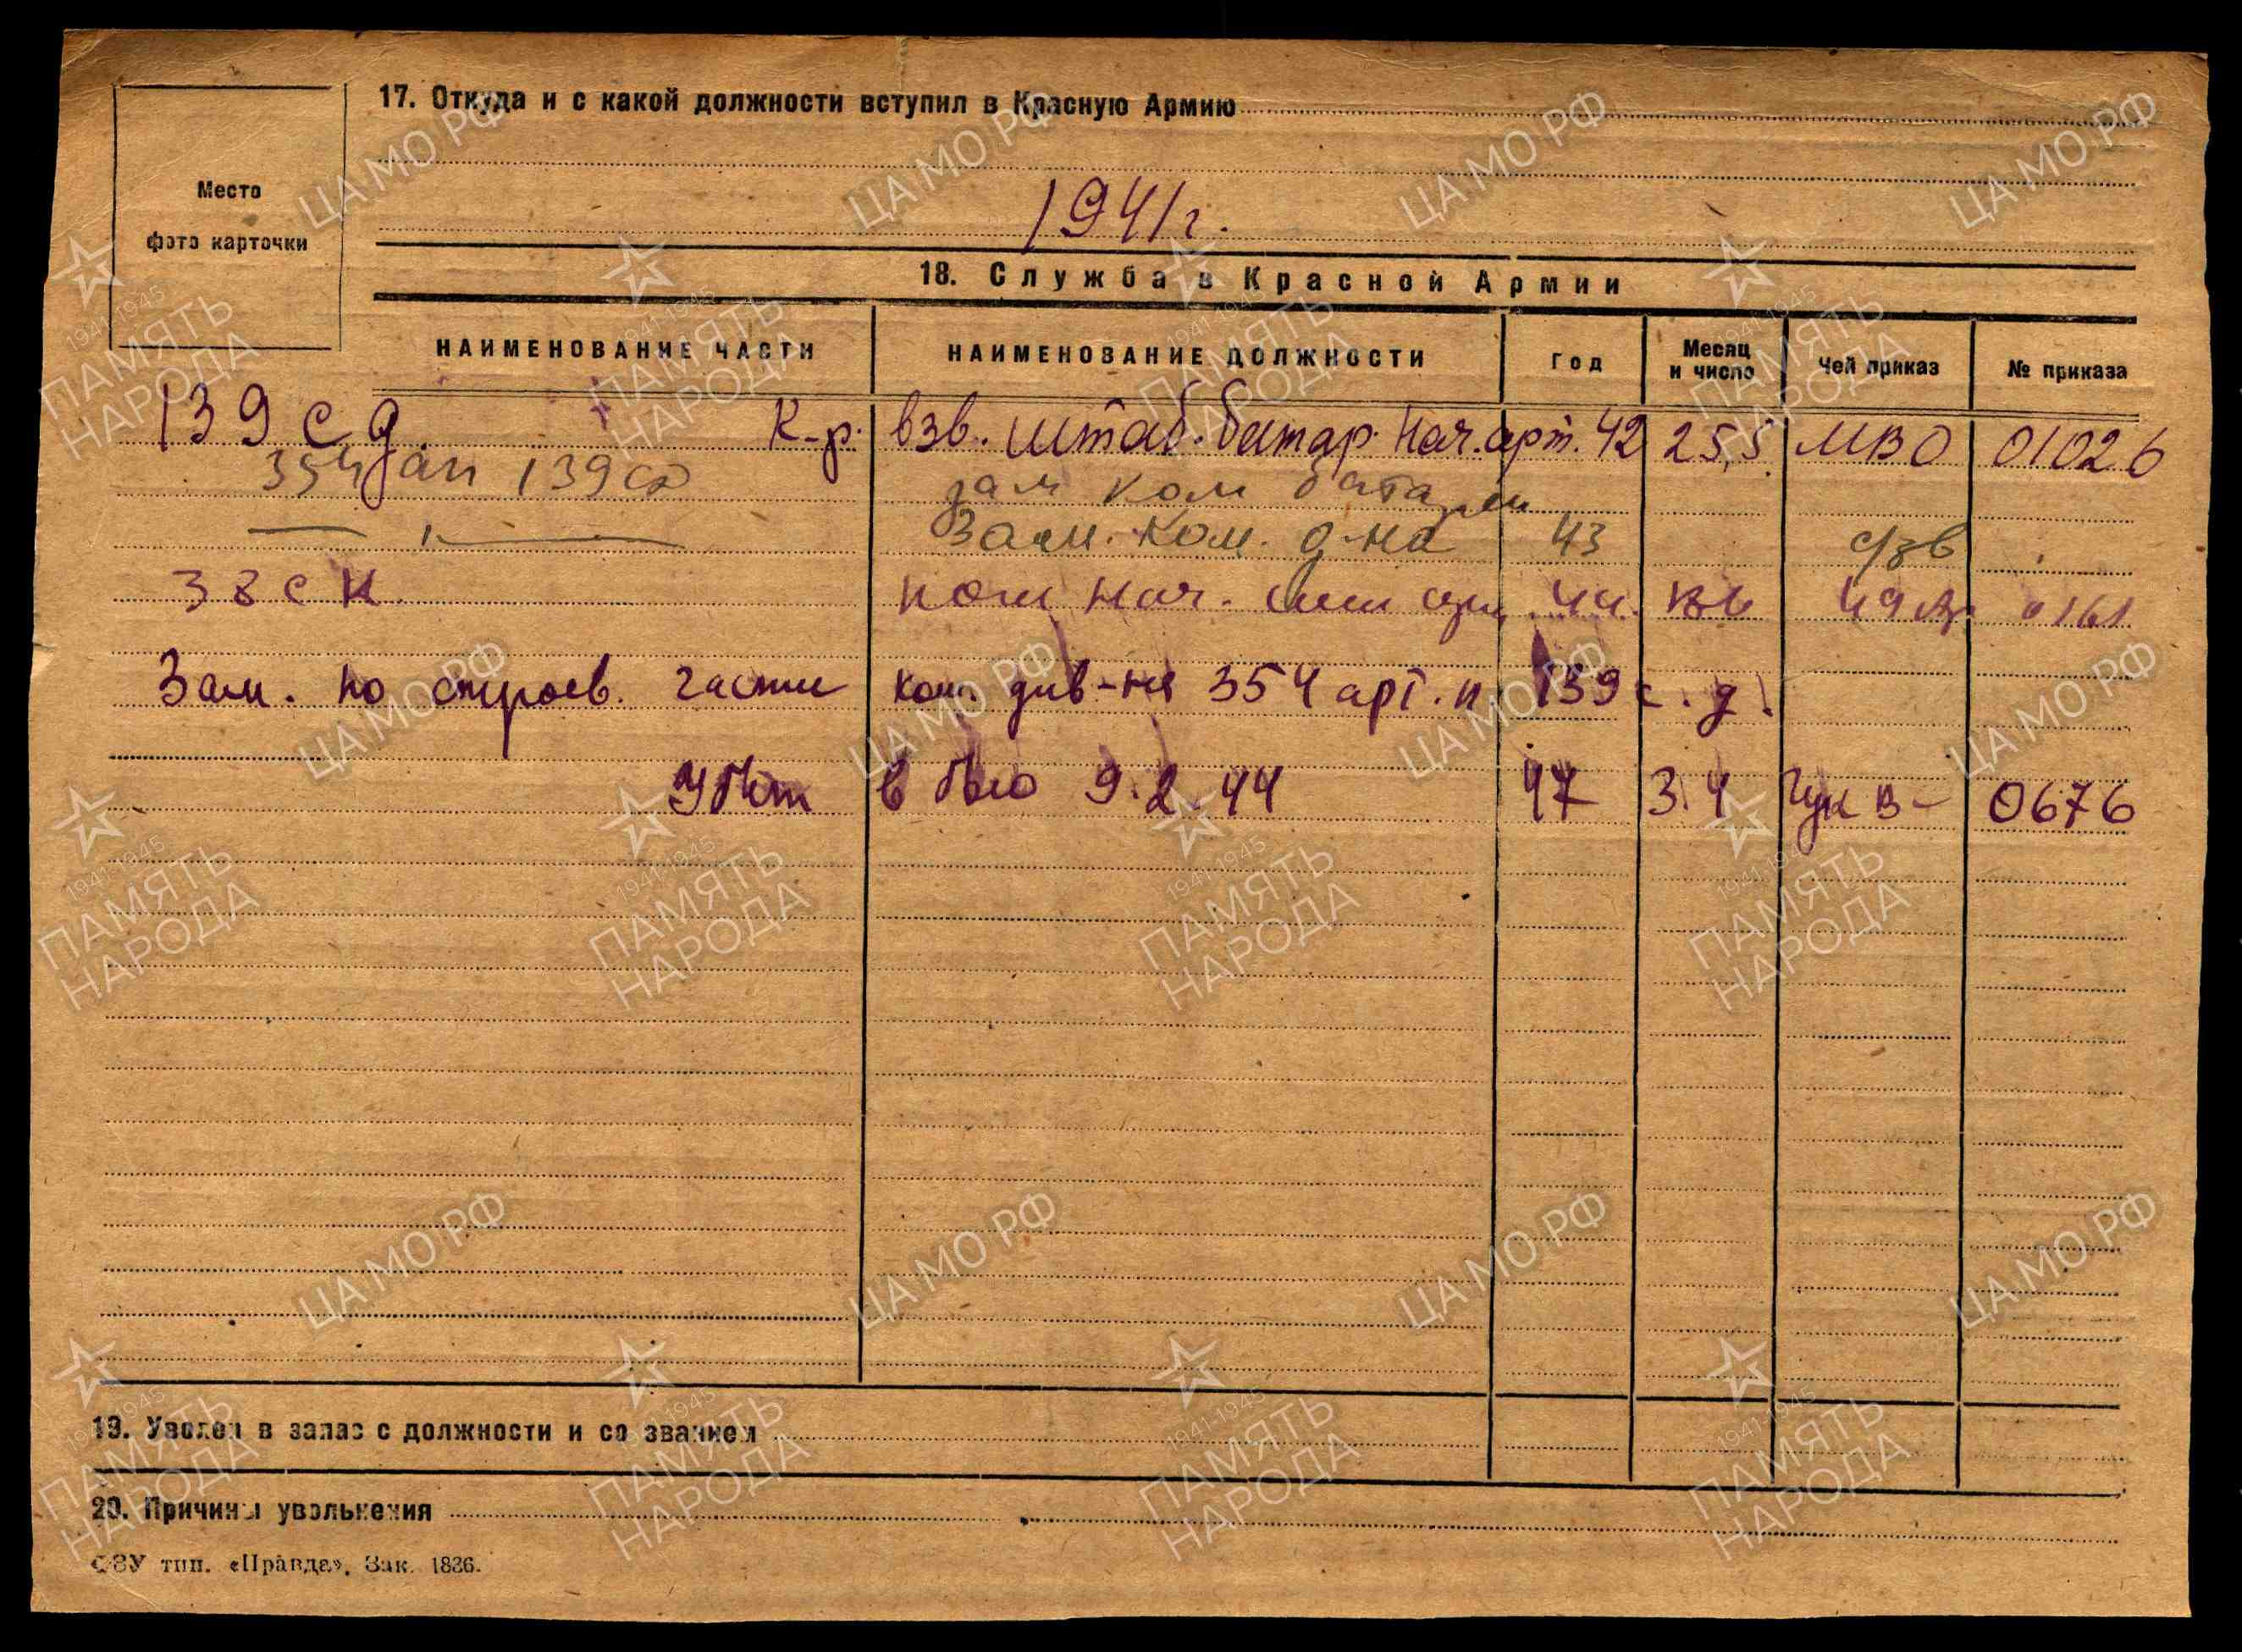 17. Откуда и с какой должности вступил в Красную Армию
Место
фото карточки
1941 г.
18. Служба в Красной Армии
НАИМЕНОВАНИЕ ЧАСТИ НАИМЕНОВАНИЕ ДОЛЖНОСТИ Год Месяц и число Чей приказ № приказа
139 сд. К-р. взв. штаб. батар. Нач. арт. 42 25.5 МВО 01026
354 ап 139 сд зам ком батареи
Зам. ком. д-на 43
38 ск пом нач. 44. 49 0161
Зам. по строев. части ком. див-на 354 арт. п. 139 с. д.
Убит в бою 9.2.44 47 3.4 гук в- 0676
19. Уволен в запас с должности и со званием
20. Причины увольнения
ФЗУ тип. «Правда». Зак. 1836.
ЦА МО РФ
1941-1945
ПАМЯТЬ
НАРОДА